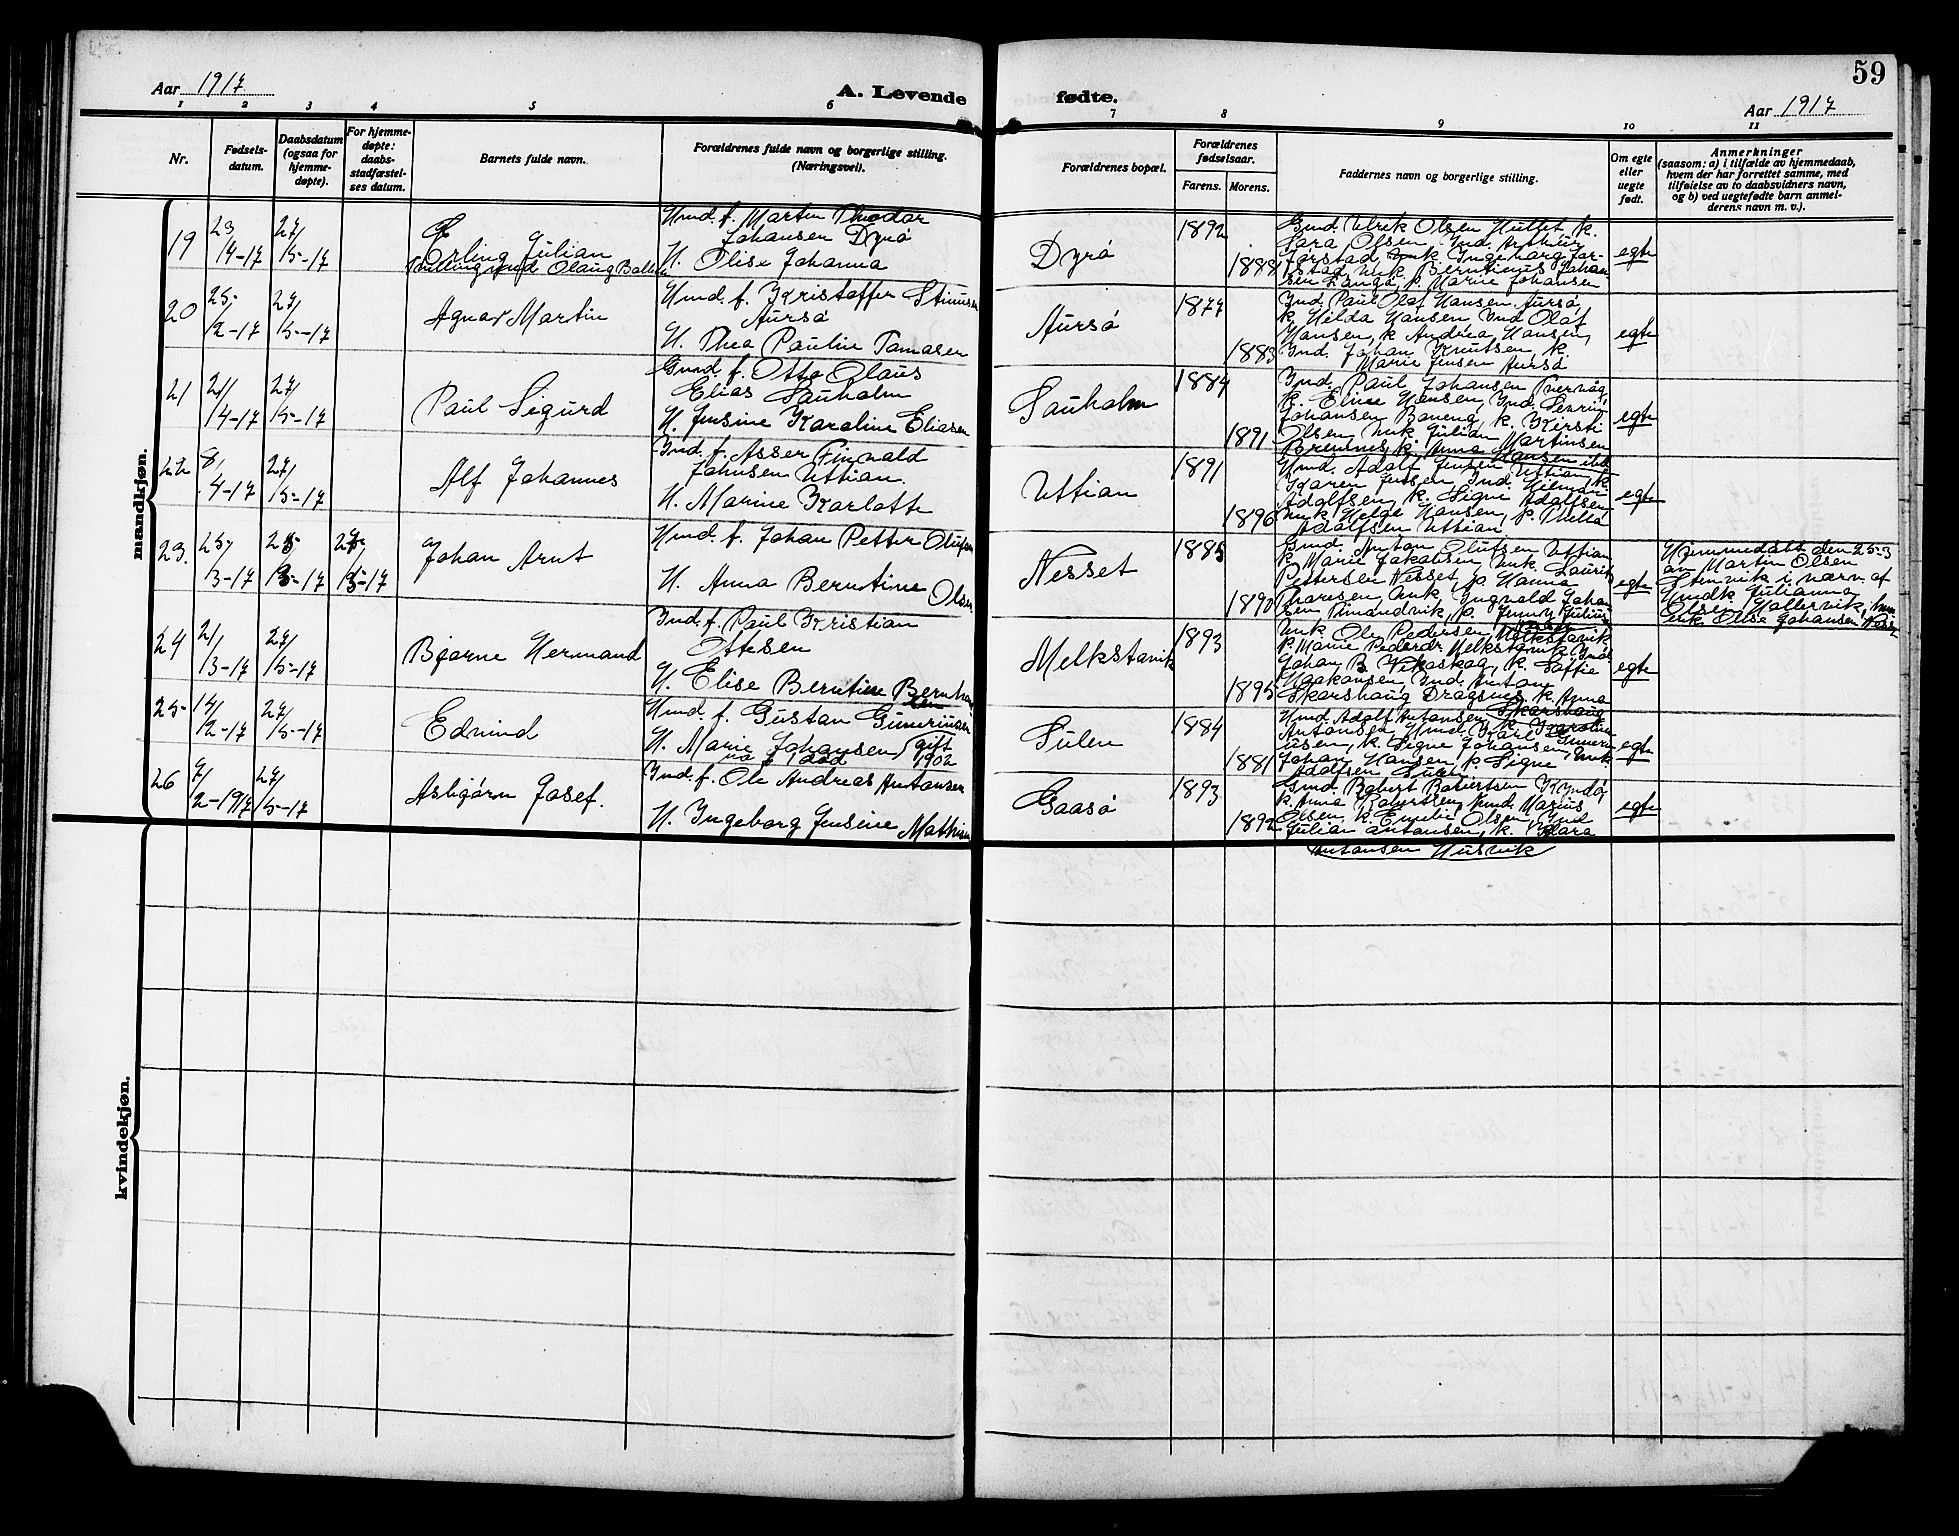 59
Aar 1917
A. Levende fødte.
Aar 1917
1 2 3 4 5 6 7 8 9 10 11
Nr.
Fødsels-
datum.
Daabsdatum
(ogsaa for
hjemme-
døpte).
For hjemme-
døpte:
daabs-
stadfæstel-
ses datum.
Barnets fulde navn.
Forældrenes fulde navn og borgerlige stilling.
(Næringsvei).
Forældrenes bopæl.
Forældrenes
fødselsaar.
Farens. Morens.
Faddernes navn og borgerlige stilling.
Om egte
eller
uegte
født.
Anmerkninger
(saasom: a) i tilfælde av hjemmedaab,
hvem der har forrettet samme, med
tilføielse av to daabsvidners navn,
og b) ved uegtefødte barn anmel-
derens navn m. v.).
mandkjøn.
19
23/4-17
27/5-17
Erling Julian
Tvilling med Olaug
Hmd. f. Martin Theodor
Johansen Dyrø
H. Olise Johanna
Dyrø
1892
1888
Gmd. Ulrik Olsen Hultet k.
Sara Olsen, Ind. Arthur
Jørstad, Ungk Ingeborg Jør-
stad Ungk. Berntinus Johan
sen Langø, p. Marie Johansen
egte
20
25/2-17
27/5-17
Agnar Martin
Hmd. f. Kristoffer
Aursø
H. Thea Pauline Tomasen
Aursø
1877
1883
Ind. Paul Olaf Hansen, Aursø,
k Hilda Hansen Ind Olaf
Hansen, k Andrea Hansen,
Ind. Johan Knutsen k.
Marie Jensen Aursø
egte
21
21/4-17
27/5-17
Paul Sigurd
Gmd. f. Otto Olaus
Elias Sauholm
H. Jensine Karoline Eliasen
Sauholm
1884
1891
Ind. Paul Johansen
k. Eline Hansen, Ind. Severin
Johansen k. Kirsti
Olsen, Ungk. Julian Martinsen
Bremnes, k. Anna Hansen ibd
egte
22
8/4-17
27/5-17
Alf Johannes
Ind. f. Asser Finvald
Johnsen Uttian.
H. Marine Karlotte
Uttian
1891
1896
Hmd. Adolf Jensen Uttian, k
Karen Jensen, Ind. Hilmar
Adolfsen, k. Signe Adolfsen
Ungk Helge Hansen, p. Thelia
Adolfsen Uttian
egte
23.
25/3-17
25/3-17
27/5-17
Johan Arnt
Hmd. f. Johan Petter Olufsen
H. Anna Berntine Olsen
Nesset
1885
1890
Gmd. Anton Olufsen Uttian
k. Marie Jakobsen, Ungk. Laurits
Pettersen Nesset, p Hanna
Tharesen, Ungk Ingvald Johan
sen p. Jenny Julius
egte
Hjemmedøbt den 25-3
av Martin Olsen
Stenvik i nærv. af
Gmdk Julianna
Olsen Hallervik,
enk. Olise Johansen
24
21/3-17
27/5-17
Bjarne Hermand
Ind. f. Paul Kristian
Ottesen
H. Elise Berntine Bernhard
sen
Melkstavik
1893
1895
Ungk. Ole Pedersen, Melkstavik
p. Marie Pedersdr Melkstavik Ind
Johan B. Vikaskag, k. Soffie
Haakonsen, Ind. Anton
Skarshaug Dragsnes, k. Anna
Skarshaug
egte
25
14/2-17
27/5-17
Edvind
Hmd. f. Gustav Gunerius
H. Marie Johansen gift 1902
Sulen
1884
1881
Hmd. Adolf Antonsen, k Karoline
Antonsen Hmd Karl
usen, k. Signe Johansen Ungk
Johan Hansen, p. Signe
Adolfsen Sulen
egte
26
7/2-1917
27/5-17
Asbjørn Josef.
Ind. f. Ole Andreas Antonsen
H. Ingeborg Jensine Mathisen
Gaasø
1893
1892
Gmd. Robert Robertsen Kyndø,
k. Anna Robertsen, Hmd. Marius
Olsen, k. Emilie Olsen, Ind
Julian Antonsen, k. Klara
Antonsen Husvik
egte
kvindekjøn.